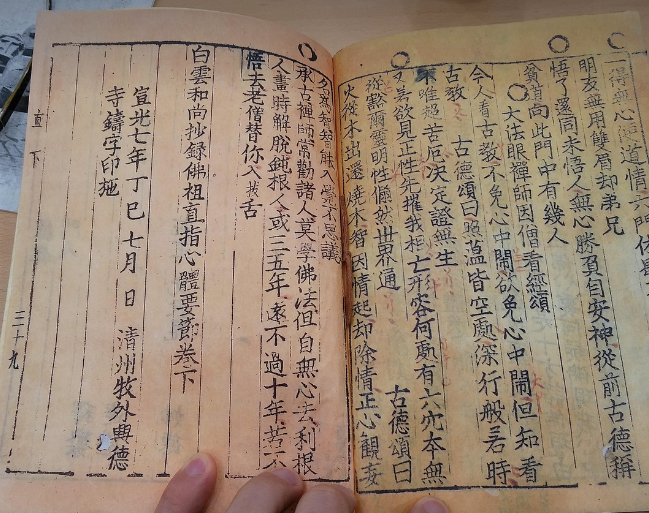 一得無心便道情六門休
朋友無用雙眉却弟兄
悟了還同未悟人無心勝負自安神從前古德稱
貧道向此門中有幾人
大法眼禪師因僧看經頌
今人看古教不免心中鬧欲免心中鬧但知看
古教 古德頌曰照蘊皆空處深行般若時
唯超苦厄决定證無生
又若欲見正性先摧我相亡形容何處有六穴本無
從黙爾靈明性儼然世界通 古德頌曰
火從木出還燒木智因情起却除情正心觀妄
為智智能入覺不思議
承古禪師常勸諸人莫學佛法但自無心去利根
人晝時解脫鈍根人或三五年遠不過十年若不
悟去老僧替你入拔舌
白雲和尚抄録佛祖直指心體要節卷下
宣光七年丁巳七月 日 清州牧外興德
寺鑄字印施
直下 三十九